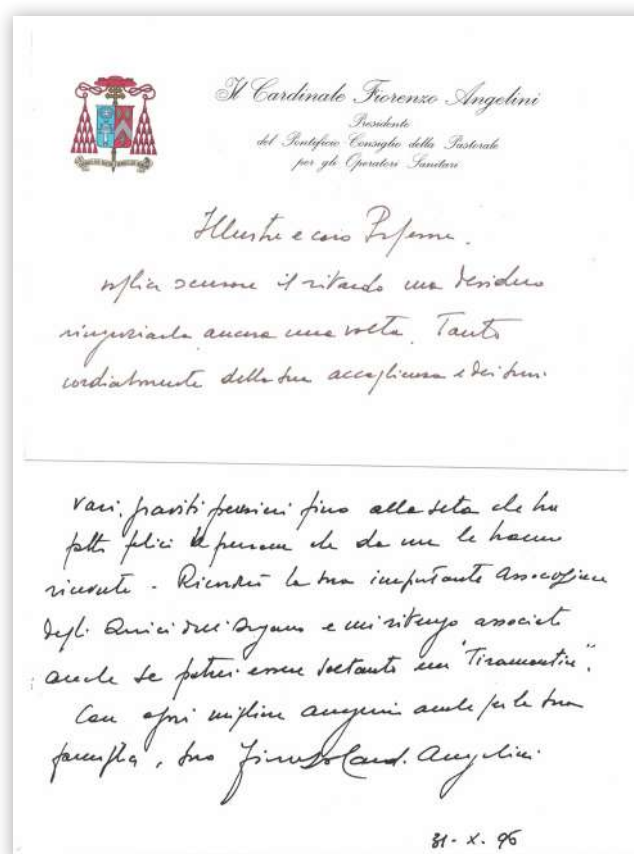 Il Cardinale Fiorenzo Angelini
Presidente
del Pontificio Consiglio della Pastorale
per gli Operatori Sanitari
Illustre e caro Professore.
voglia scusare il ritardo ma desidero
ringraziarla ancora una volta. Tanto
cordialmente della sua accoglienza e dei suoi
vari, graditi pensieri fino alla seta che ha
fatto felici le persone che da me le hanno
ricevute - la sua importante Associazione
degli Amici dell'Organo e mi ritengo associato
anche se potrei essere soltanto un "Tiramantici".
Con ogni migliore augurio anche per la sua
famiglia, suo Fiorenzo Card. Angelini
31-X.96